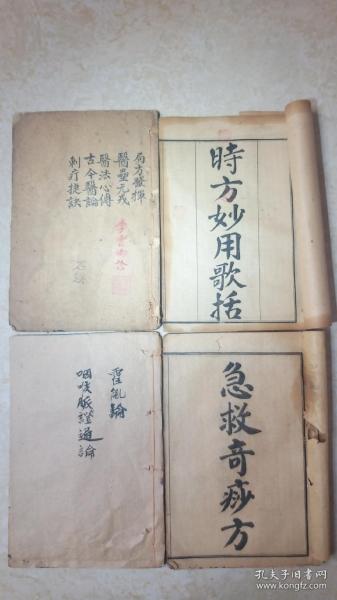 局方發揮
醫壘元戎
醫法心傳
古今醫論
刺疔捷訣
時方妙用歌括
霍亂論
咽喉脈證通論
急救奇痧方
孔夫子旧书网
www.kongfz.com